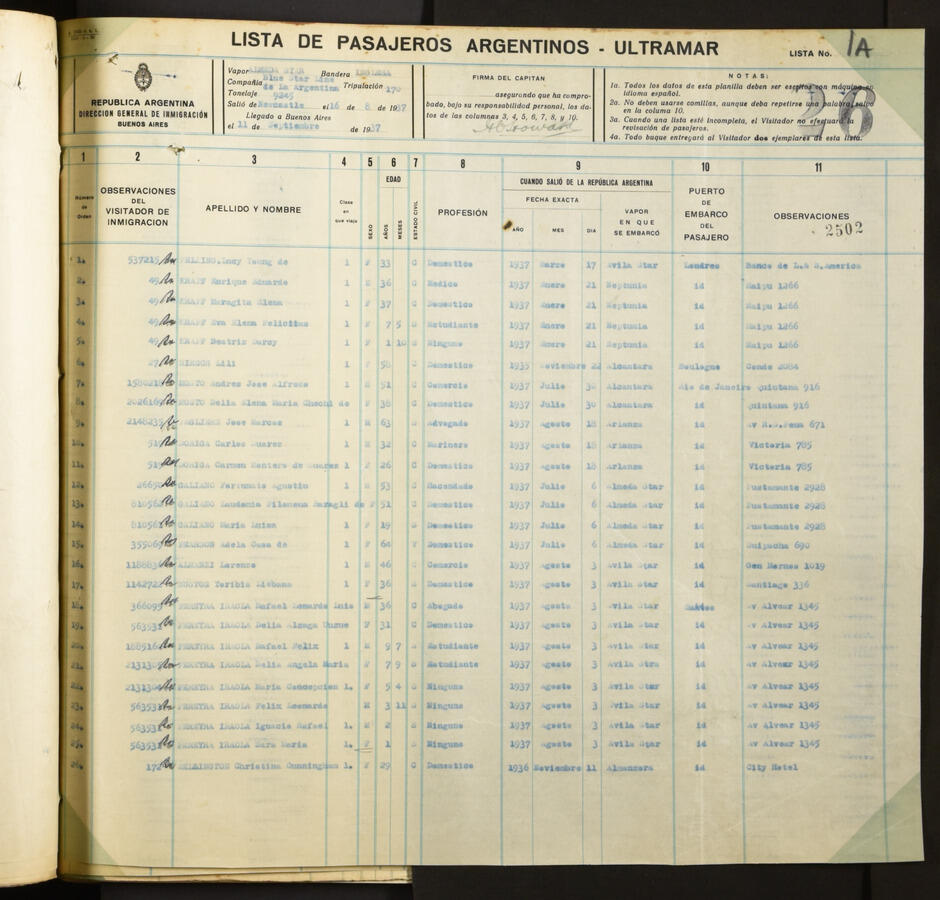 LISTA DE PASAJEROS ARGENTINOS - ULTRAMAR
LISTA No. 1A
REPUBLICA ARGENTINA
DIRECCION GENERAL DE INMIGRACION
BUENOS AIRES
Vapor ALMEDA STAR Bandera INGLESA
Compañia Blue Star Line de La Argentina Tripulación 170
Tonelaje 9245
Salió de Newcastle el 16 de 8 de 1937
Llegado a Buenos Aires
el 11 de Septiembre de 1937
FIRMA DEL CAPITAN
asegurando que ha comprobado, bajo su responsabilidad personal, los datos de las columnas 3, 4, 5, 6, 7, 8, y 10.
NOTAS:
1a. Todos los datos de esta planilla deben ser escritos con máquina en idioma español.
2a. No deben usarse comillas, aunque deba repetirse una palabra, salvo en la columna 10.
3a. Cuando una lista esté incompleta, el Visitador no efectuará la revisación de pasajeros.
4a. Todo buque entregará al Visitador dos ejemplares de esta lista.
26
1 2 3 4 5 6 7 8 9 10 11
Número de Orden
OBSERVACIONES DEL VISITADOR DE INMIGRACION
APELLIDO Y NOMBRE
Clase en que viaja
SEXO
EDAD
AÑOS MESES
ESTADO CIVIL
PROFESIÓN
CUANDO SALIÓ DE LA REPÚBLICA ARGENTINA
FECHA EXACTA
AÑO MES DIA
VAPOR EN QUE SE EMBARCÓ
PUERTO DE EMBARCO DEL PASAJERO
OBSERVACIONES
2502
1. 537215 Lucy Young de 1 F 33 C Domestico 1937 Marzo 17 Avila Star Londres Banco de L. & S. America
2. 49 KRAFF Enrique Eduardo 1 M 36 C Medico 1937 Enero 21 Neptunia id Maipu 1266
3. 49 KRAFF Maragita Elena 1 F 37 C Domestico 1937 Enero 21 Neptunia id Maipu 1266
4. 49 KRAFF Eva Elena Felicitas 1 F 7 5 S Estudiante 1937 Enero 21 Neptunia id Maipu 1266
5. 49 KRAFF Beatriz Darcy 1 F 1 10 S Ninguno 1937 Enero 21 Neptunia id Maipu 1266
6. 27 Lili 1 F 58 Domestico 1935 Noviembre 22 Alcantara Boulogne Conde 2084
7. 1580218 Andres Jose Alfredo 1 M 51 C Comercio 1937 Julio 30 Alcantara Rio de Janeiro Quintana 916
8. 2026169 Delia Elena Maria Chechi de 1 F 38 C Domestico 1937 Julio 30 Alcantara id Quintana 916
9. 2148235 Jose Marcos 1 M 63 Advogado 1937 Agosto 18 Arlanza id Av R.S.Pena 671
10. 51 DORIGA Carlos Suarez 1 M 32 C Marinero 1937 Agosto 18 Arlanza id Victoria 785
11. 51 DORIGA Carmen Montero de Suarez 1 F 26 C Domestico 1937 Agosto 18 Arlanza id Victoria 785
12. 2665 GALIANO Fortunato Agustin 1 M 53 C Hacendado 1937 Julio 6 Almeda Star id Bustamante 2928
13. 81056 GALIANO Laudemia Filomena Baragli de F 51 C Domestico 1937 Julio 6 Almeda Star id Bustamante 2928
14. 81056 GALIANO Maria Luisa 1 F 19 S Domestico 1937 Julio 6 Almeda Star id Bustamante 2928
15. 355069 PEARSON Adela Casa de 1 F 64 V Domestico 1937 Julio 6 Almeda Star id Suipacha 690
16. 118883 Lorenzo 1 M 46 C Comercio 1937 Agosto 3 Avila Star id Gen Hornos 1019
17. 114272 BUSTOS Toribia Liebana 1 F 36 S Domestico 1937 Agosto 3 Avila Star id Santiago 336
18. 366095 PEREYRA IRAOLA Rafael Leonardo Luis M 36 C Abogado 1937 Agosto 3 Avila Star Santos Av Alvear 1345
19. 56353 PEREYRA IRAOLA Delia Alzaga Unzue F 31 C Domestico 1937 Agosto 3 Avila Star id Av Alvear 1345
20. 188516 PEREYRA IRAOLA Rafael Felix 1 M 9 7 S Estudiante 1937 Agosto 3 Avila Star id Av Alvear 1345
21. PEREYRA IRAOLA Delia Angela Maria F 7 9 S Estudiante 1937 Agosto 3 Avila Stra id Av Alvear 1345
22. PEREYRA IRAOLA Maria Concepcion 1. F 5 4 S Ninguno 1937 Agosto 3 Avila Star id Av Alvear 1345
23. 56353 PEREYRA IRAOLA Felix Leonardo M 3 11 S Ninguno 1937 Agosto 3 Avila Star id Av Alvear 1345
24. 56353 PEREYRA IRAOLA Ignacio Rafael 1. M 2 S Ninguno 1937 Agosto 3 Avila Star id Av Alvear 1345
25. 56353 PEREYRA IRAOLA Sara Maria 1. F 1 S Ninguno 1937 Agosto 3 Avila Star id Av Alvear 1345
26. 172 Christina Cunningham 1. F 29 C Domestico 1936 Noviembre 11 Almanzora id City Hotel